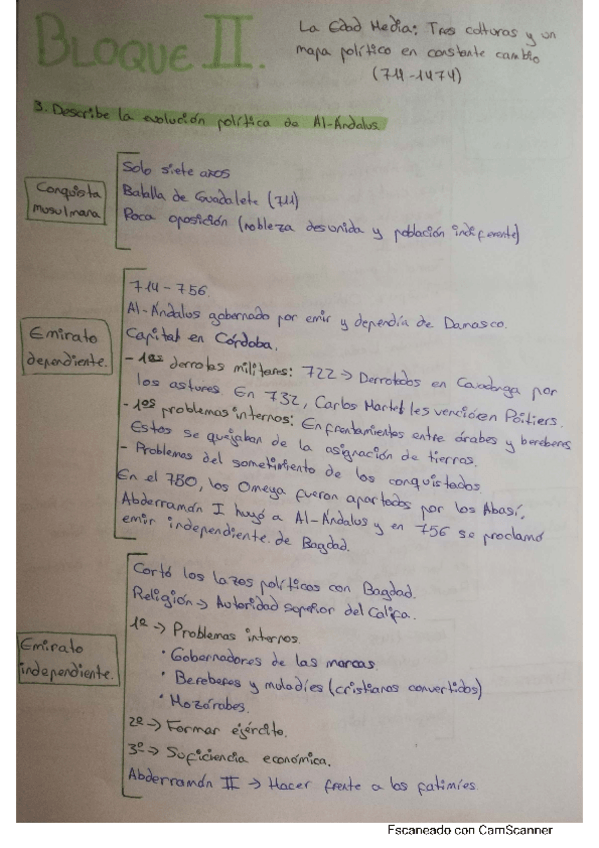 BLOQUE II.
La Edad Media: Tres culturas y un
mapa político en constante cambio
(711-1474)
3. Describe la evolución política de Al-Ándalus.
Conquista
musulmana
Solo siete años
Batalla de Guadalete (711)
Poca oposición (nobleza desunida y población indiferente)
Emirato
dependiente.
714-756.
Al-Ándalus gobernado por emir y dependía de Damasco.
Capital en Córdoba.
- 1as derrotas militares: 722 → Derrotados en Covadonga por
los astures. En 732, Carlos Martel les venció en Poitiers.
- 1os problemas internos: Enfrentamientos entre árabes y bereberes
Estos se quejaban de la asignación de tierras.
- Problemas del sometimiento de los conquistados.
En el 780, los Omeya fueron apartados por los Abasí.
Abderramán I huyó a Al-Ándalus y en 756 se proclamó
emir independiente de Bagdad.
Emirato
independiente.
Cortó los lazos políticos con Bagdad.
Religión → Autoridad superior del Califa.
1º → Problemas internos.
· Gobernadores de las marcas
· Bereberes y muladíes (cristianos convertidos)
· Mozárabes.
2º → Formar ejército.
3º → Suficiencia económica.
Abderramán II → Hacer frente a los fatimíes.
Escaneado con CamScanner